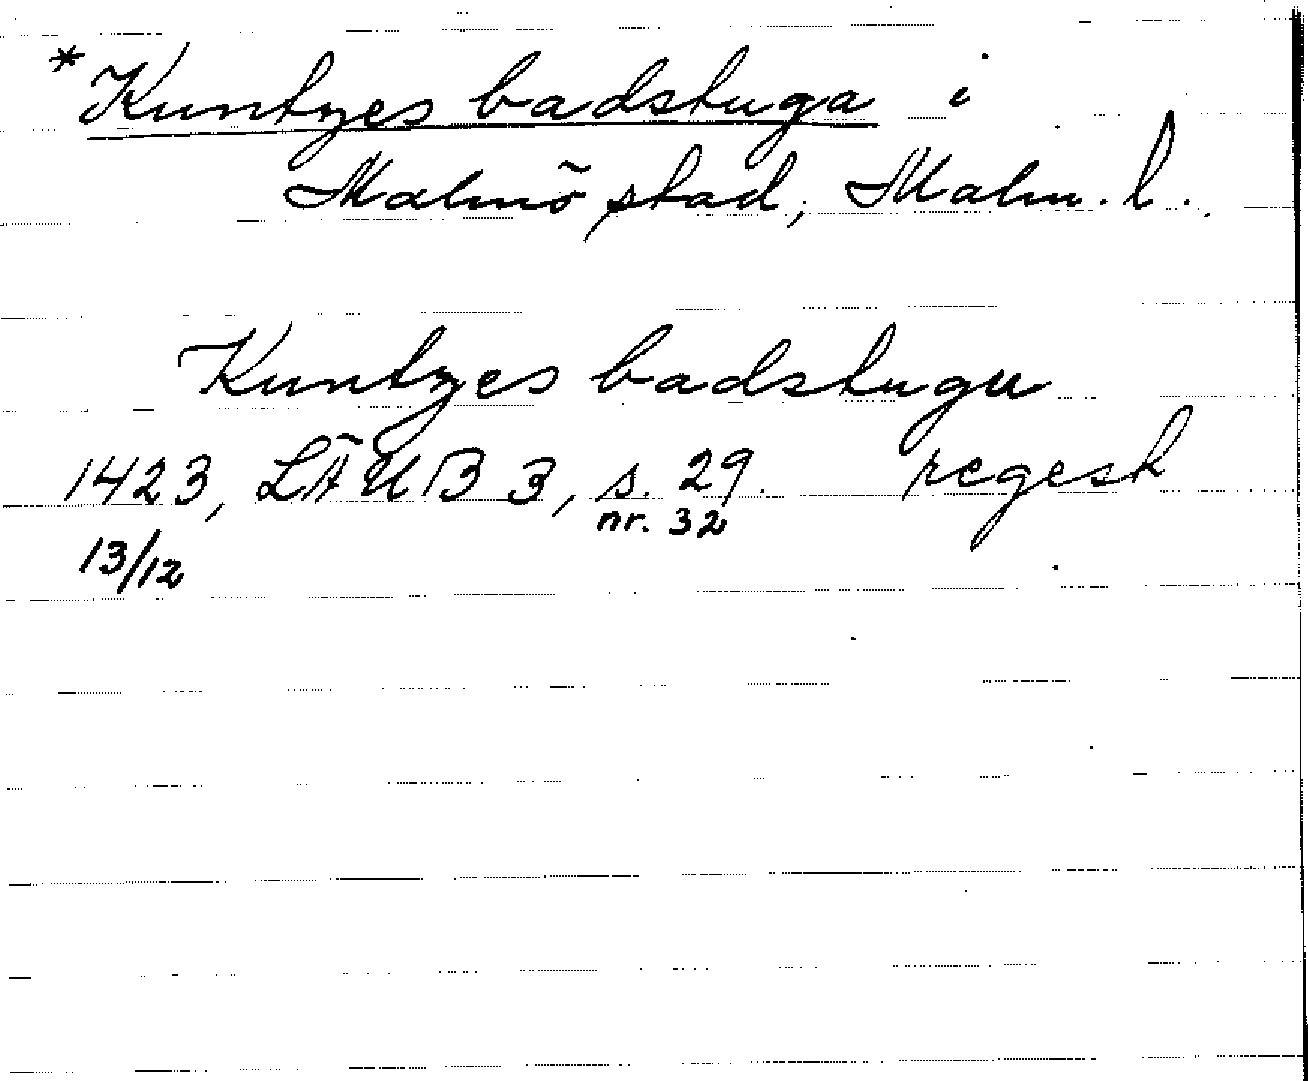 *Kuntzes badstuga i
Malmö stad, Malm. l.
Kuntzes badstugu
1423, LÄUB 3, s. 29. regest
13/12 nr. 32